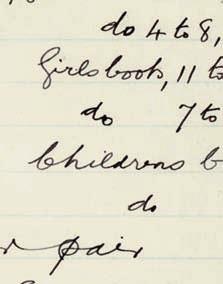 do 4 to 8,
Girls boots, 11 to
do 7 to
Childrens b
do
pair